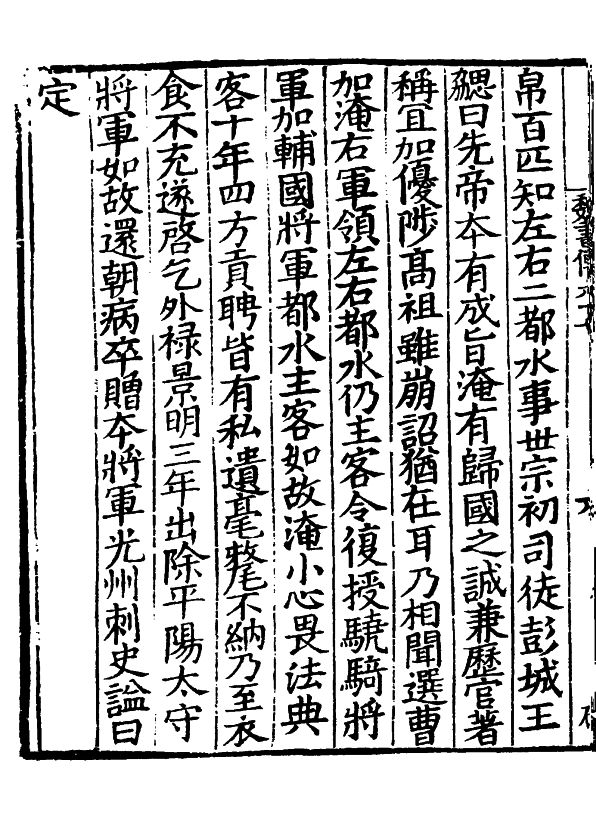 魏書傳
帛百匹知左右二都水事世宗初司徒彭城王
勰曰先帝夲有成旨淹有歸國之誠兼歷官著
稱宜加優陟髙祖雖崩詔猶在耳乃相聞選曹
加淹右軍領左右都水仍主客令復授驍騎將
軍加輔國將軍都水主客如故淹小心畏法典
客十年四方貢聘皆有私遺毫氂不納乃至衣
食不充遂啓乞外禄景明三年出除平陽太守
將軍如故還朝病卒贈夲將軍光州刺史謚曰
定